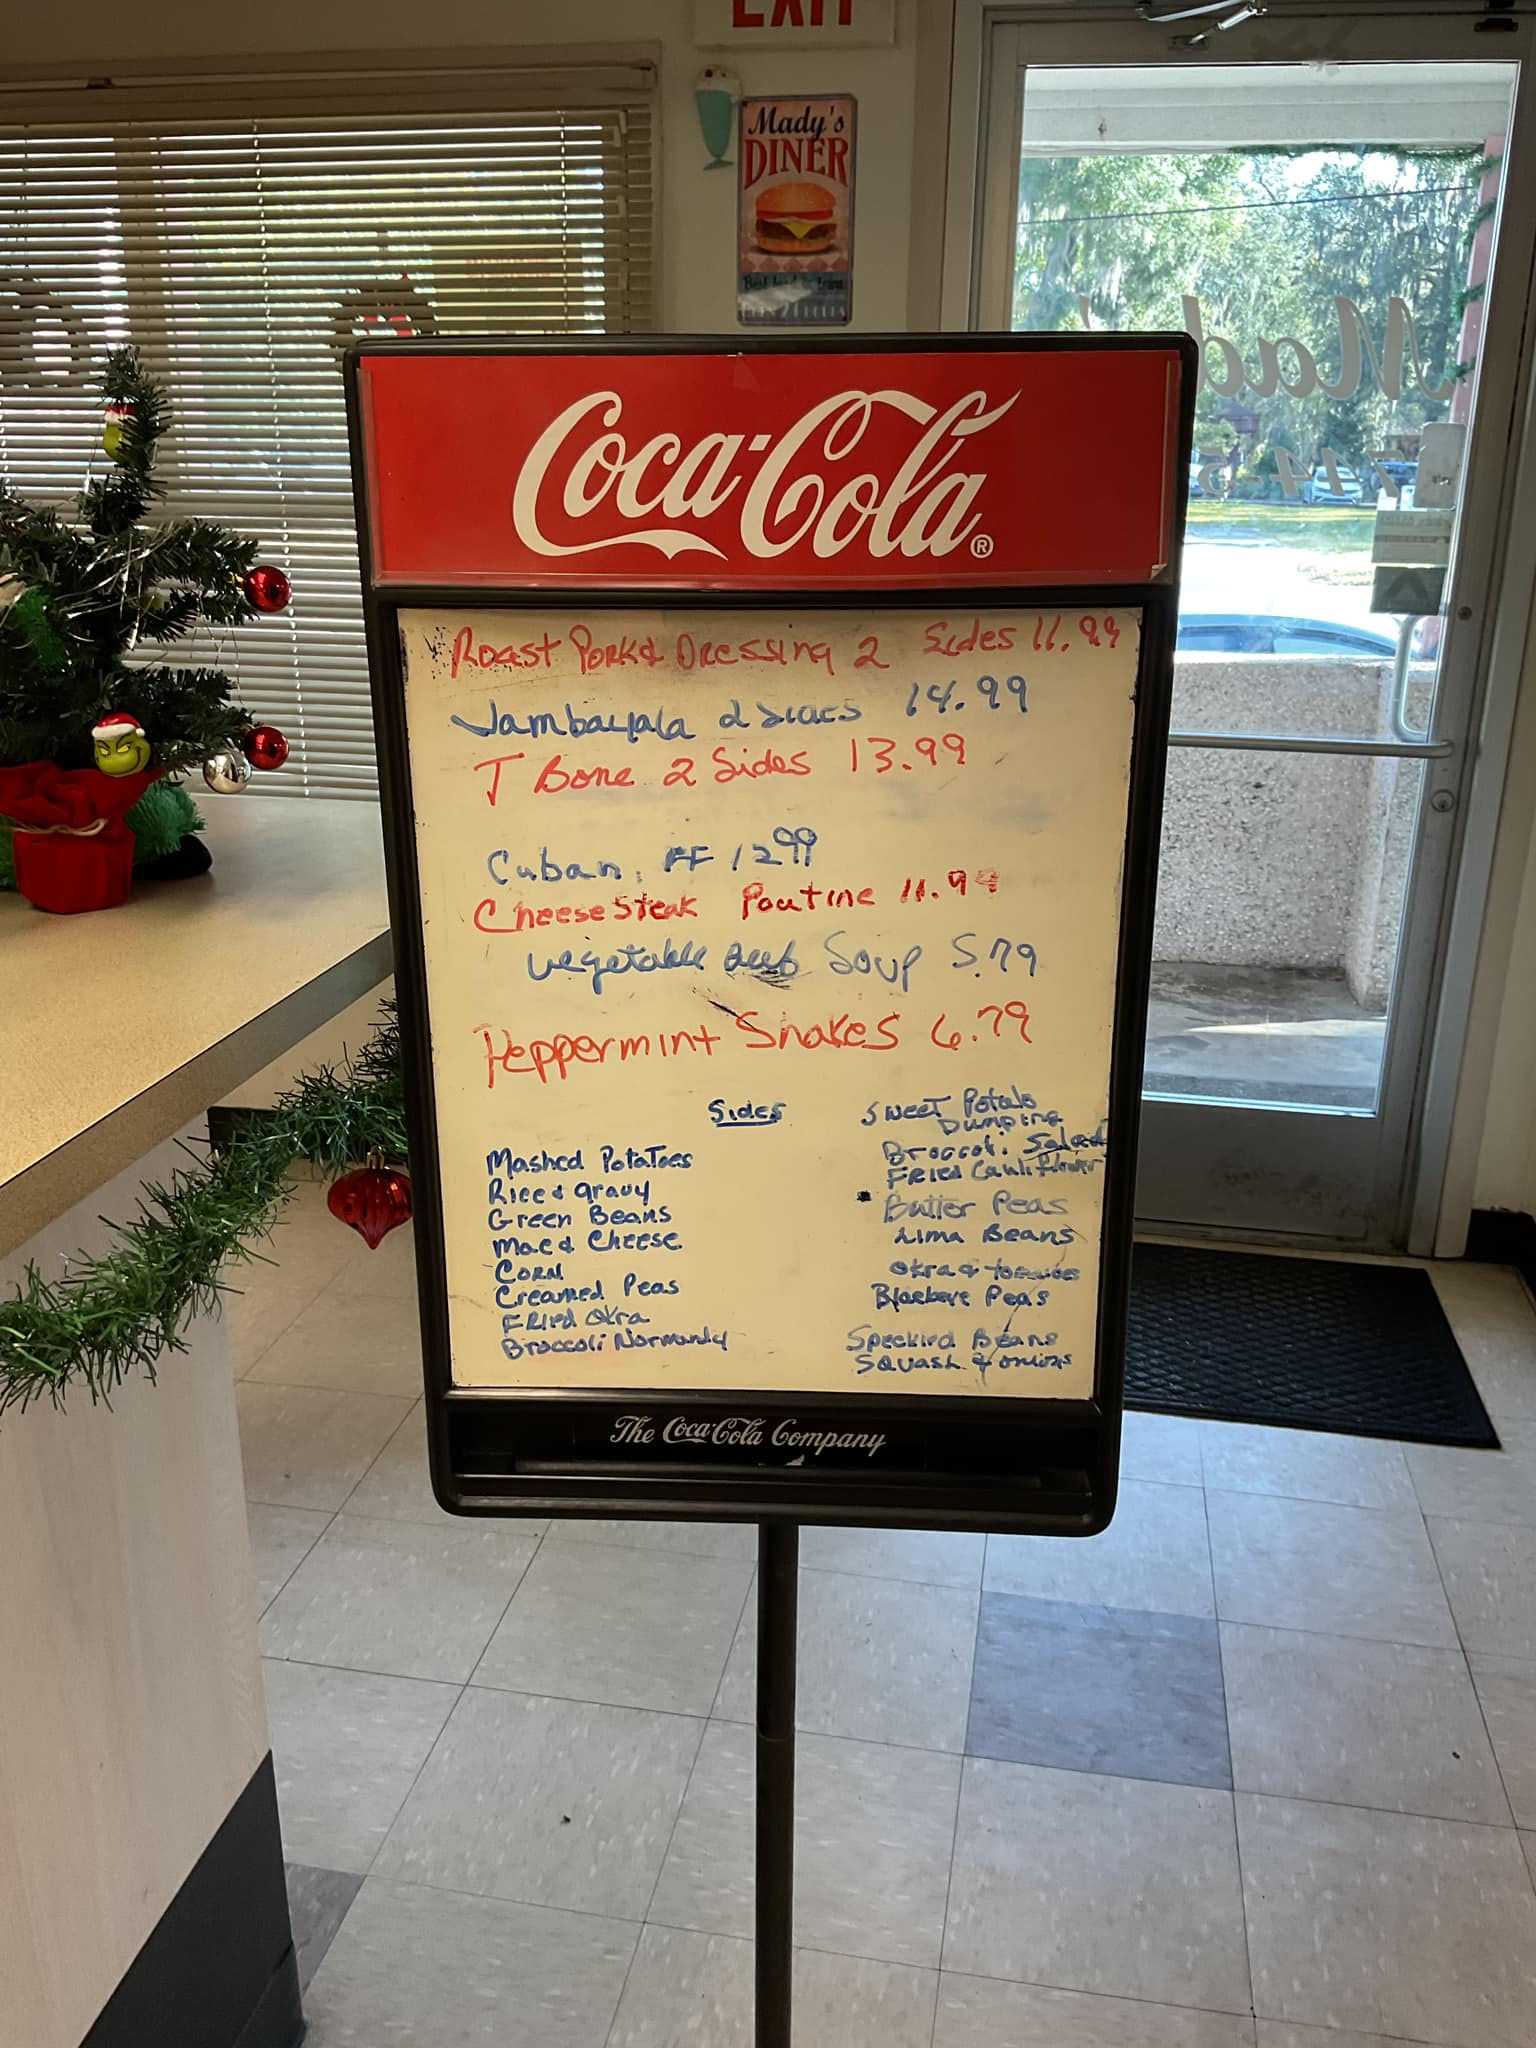 EXIT
Mady's
DINER
Mad
714-5
Coca-Cola®
Roast Pork & Dressing 2 Sides 11.99
Jambayala 2 Sides 14.99
T Bone 2 Sides 13.99
Cuban, FF 12.99
Cheese Steak Poutine 11.99
Vegetable Beef Soup 5.79
Peppermint Shakes 6.79
Sides
Mashed Potatoes
Rice & gravy
Green Beans
Mac & Cheese
CORN
Creamed Peas
FRied Okra
Broccoli Normandy
Sweet Potato
Dumping
Broccoli Salad
FRied Cauliflower
Butter Peas
Lima Beans
Okra & tomatoes
Blackeye Peas
Speckled Beans
Squash & onions
The Coca-Cola Company